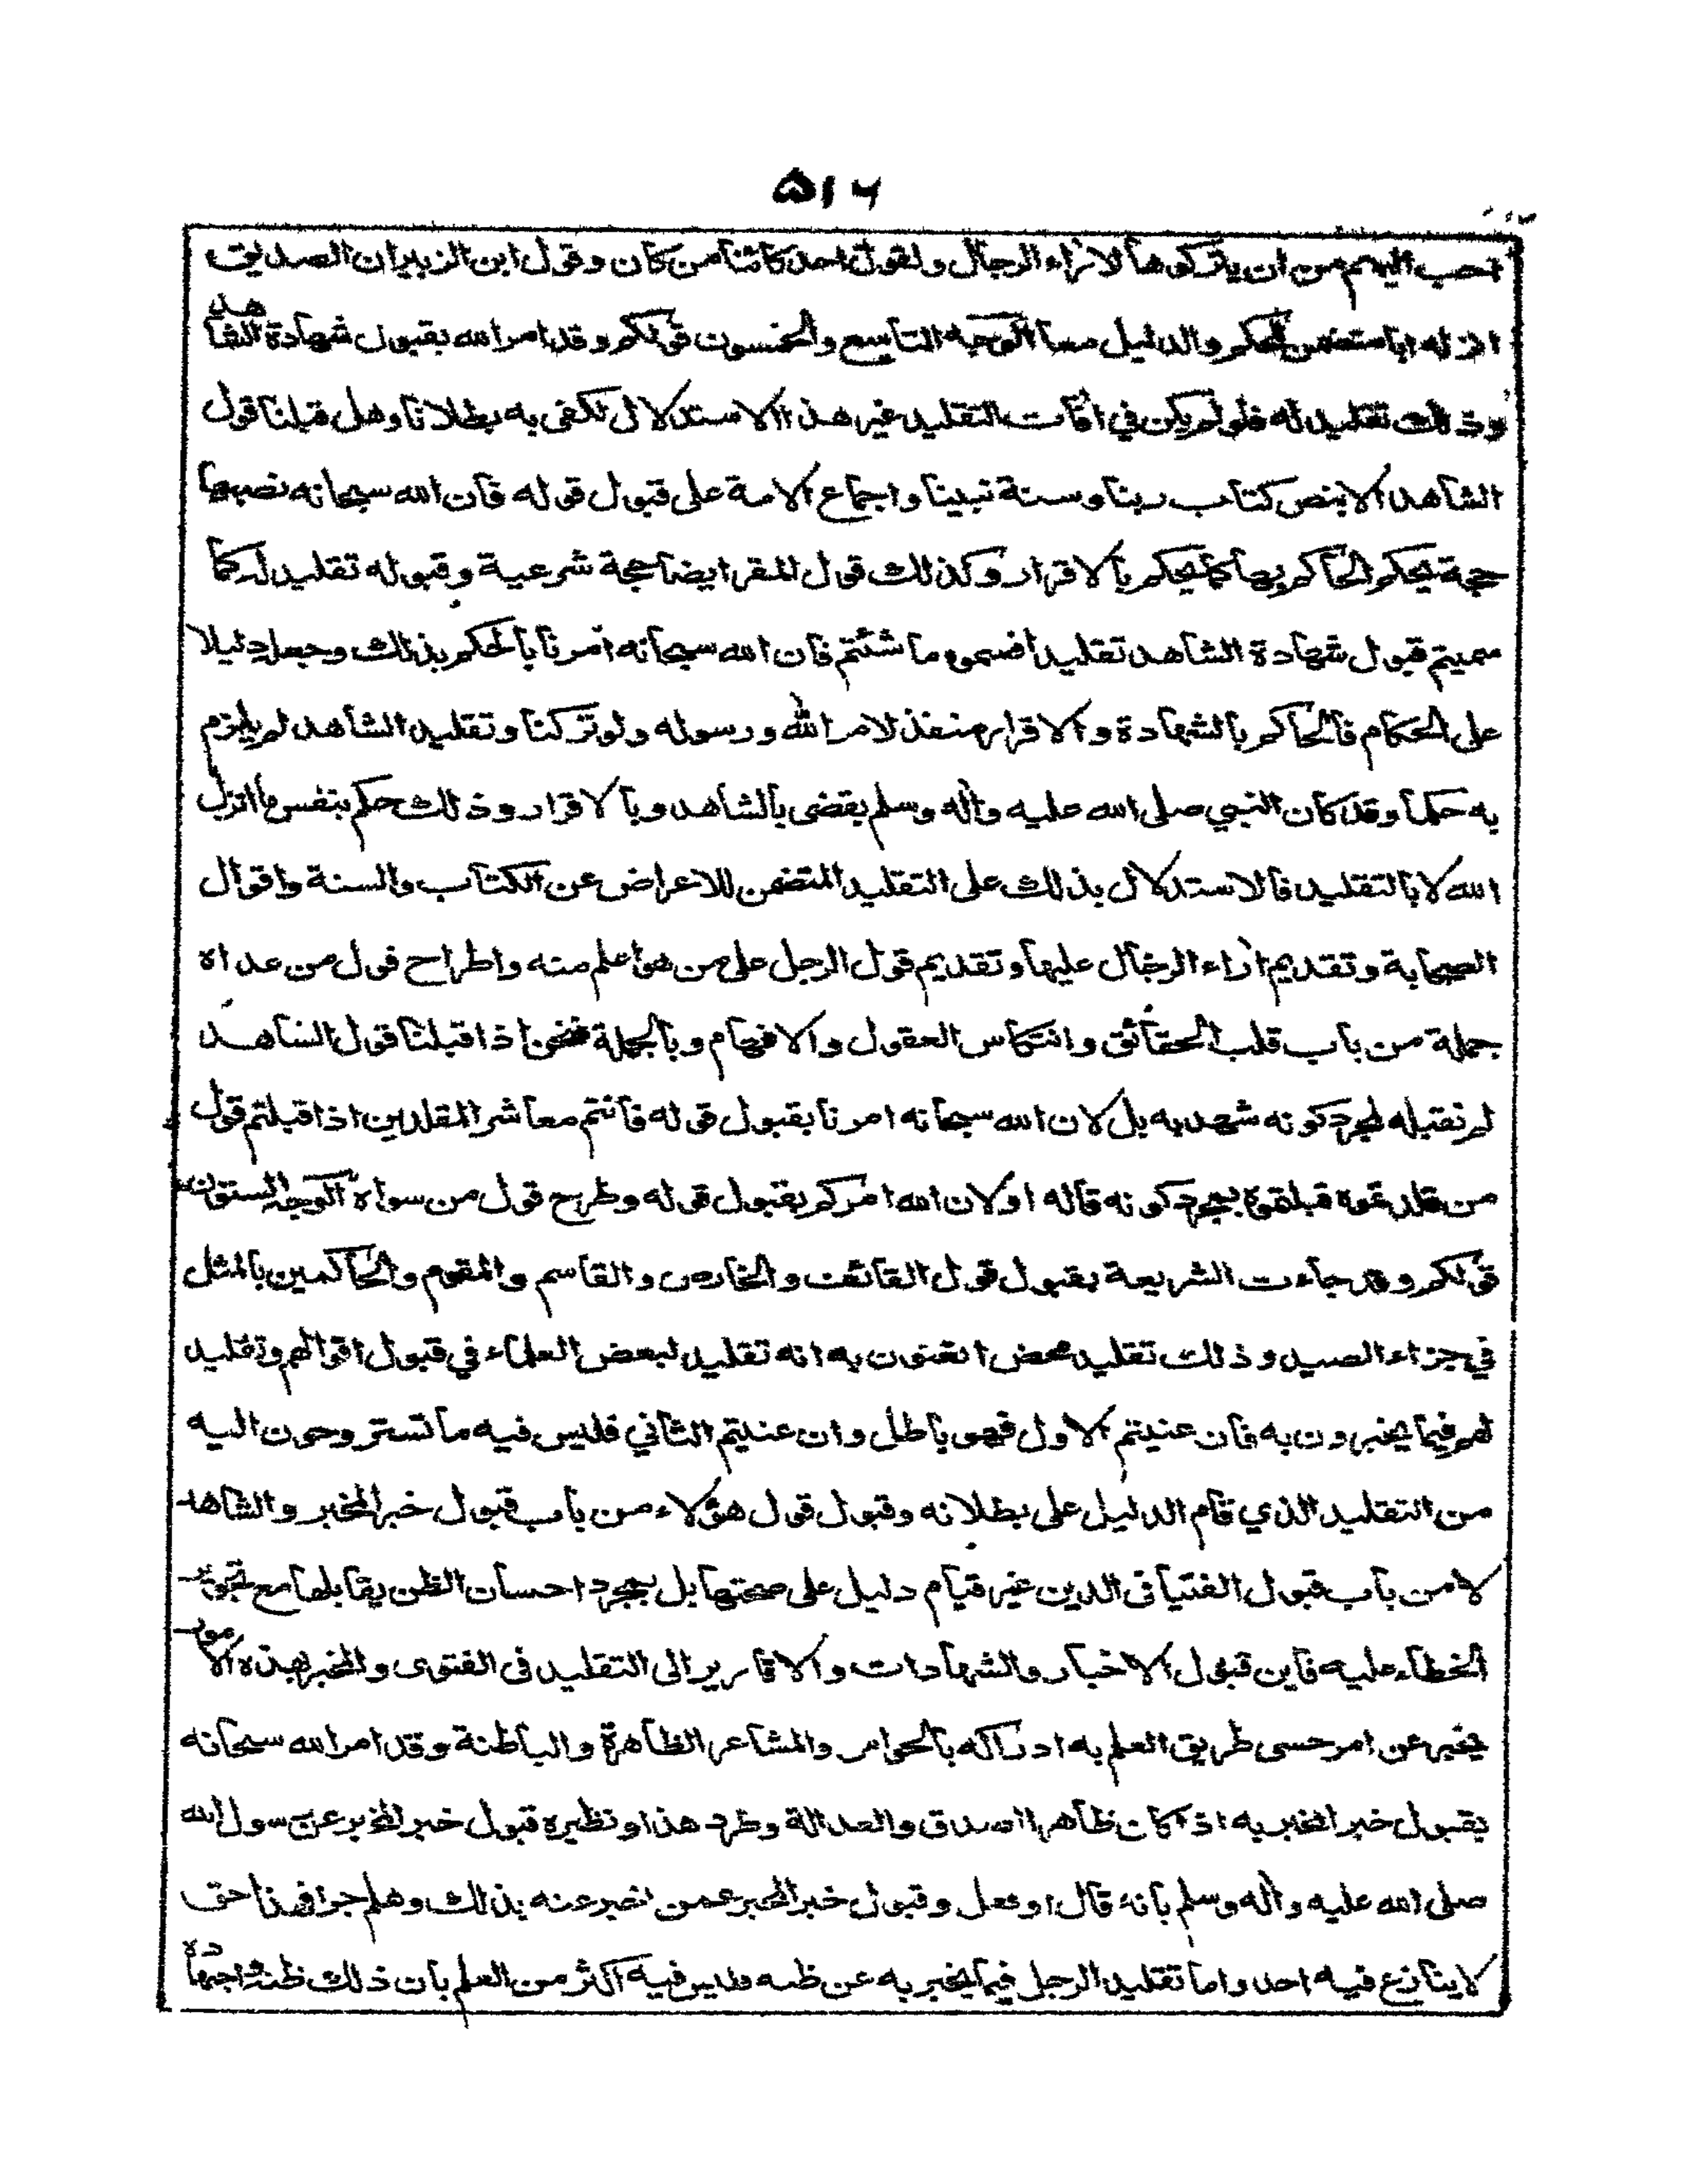 ۵۱۶
احب اليهم من ان يتركوها لآراء الرجال ولقول احد كائنا من كان وقول ابن الزبير ان الصديق
انزله ابا متضمن للحكم والدليل معا الوجه التاسع والخمسون قولكم وقد امر الله بقبول شهادة الشاهد
وذلك تقليد له فلو لم يكن في آفات التقليد غير هذا الاستدلال لكفى به بطلانا وهل قبلنا قول
الشاهد الا بنص كتاب ربنا وسنة نبينا واجماع الامة على قبول قوله فان الله سبحانه نصبها
حجة يحكم الحاكم بها كما يحكم بالاقرار وكذلك قول المقر ايضا حجة شرعية وقبوله تقليد له كما
سميتم قبول شهادة الشاهد تقليدا فسموه ما شئتم فان الله سبحانه امرنا بالحكم بذلك وجعله دليلا
على الحكام فالحاكم بالشهادة والاقرار منفذ لامر الله ورسوله ولو تركنا وتقليد الشاهد لم يلزم
به حكما وقد كان النبي صلى الله عليه وآله وسلم يقضى بالشاهد وبالاقرار وذلك حكم بنفس ما انزل
الله لا بالتقليد فالاستدلال بذلك على التقليد المتضمن للاعراض عن الكتاب والسنة واقوال
الصحابة وتقديم اراء الرجال عليها وتقديم قول الرجل على من هو اعلم منه واطراح قول من عداه
جملة من باب قلب الحقائق وانتكاس العقول والافهام وبالجملة فنحن اذا قبلنا قول الشاهد
لم نقبله لمجرد كونه شهد به بل لان الله سبحانه امرنا بقبول قوله فانتم معاشر المقلدين اذا قبلتم قول
من قلدتموه قبلتموه بمجرد كونه قاله او لان الله امركم بقبول قوله وطرح قول من سواه الوجه الستون
قولكم وقد جاءت الشريعة بقبول قول القائف والخارص والقاسم والمقوم والحاكمين بالمثل
في جزاء الصيد وذلك تقليد محض اتعنون به انه تقليد لبعض العلماء في قبول اقوالهم وتقليد
لهم فيما يخبرون به فان عنيتم الاول فهو باطل وان عنيتم الثاني فليس فيه ما تستروحون اليه
من التقليد الذي قام الدليل على بطلانه وقبول قول هؤلاء من باب قبول خبر المخبر والشاهد
لا من باب قبول الفتيا فى الدين غير قيام دليل على صحتها بل بمجرد احسان الظن بقايلها مع تجويز
الخطاء عليه فاين قبول الاخبار والشهادات والاقارير الى التقليد فى الفتوى والمخبر بهذه الامور
يخبر عن امر حسى طريق العلم به ادراكه بالحواس والمشاعر الظاهرة والباطنة وقد امر الله سبحانه
بقبول خبر المخبر به اذا كان ظاهر الصدق والعدالة وطرد هذا ونظيره قبول خبر المخبر عن رسول الله
صلى الله عليه وآله وسلم بانه قال او فعل وقبول خبر المخبر عمن اخبر عنه بذلك وهلم جرا فهذا حق
لا ينازع فيه احد واما تقليد الرجل فيما يخبر به عن ظنه فليس فيه اكثر من العلم بان ذلك ظنه واجتهاده